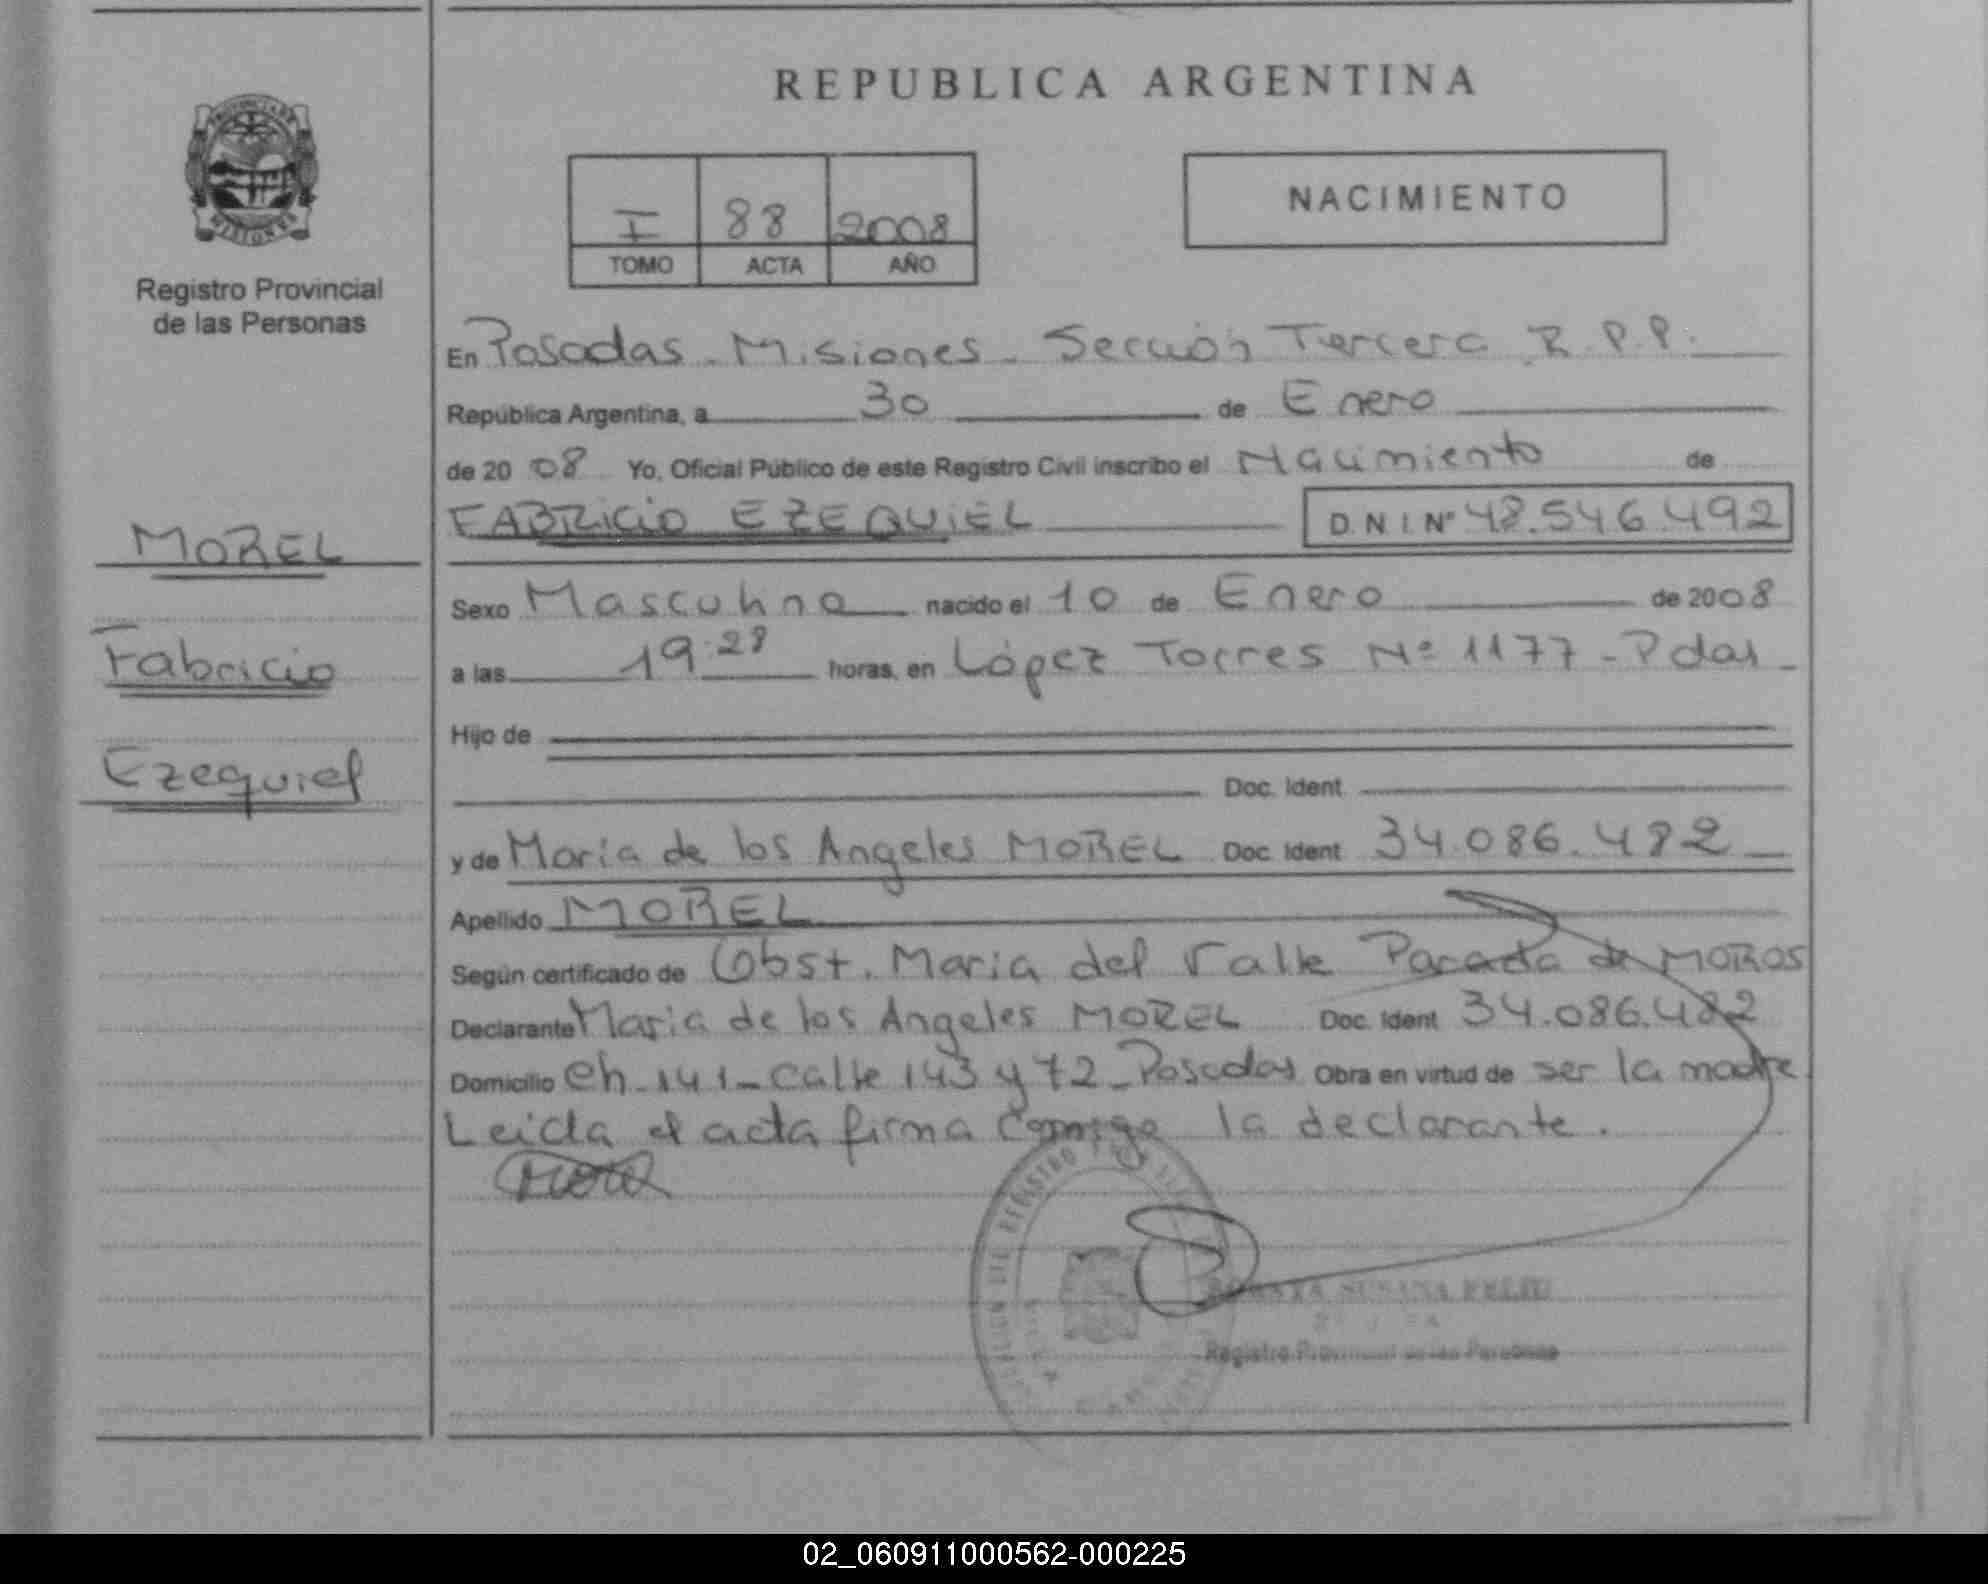 REPUBLICA ARGENTINA
PROVINCIA DE
MISIONES
Registro Provincial
de las Personas
I 88 2008
TOMO ACTA AÑO
NACIMIENTO
En Posadas - Misiones - Sección Tercera R.P.P.
República Argentina, a 30 de Enero
de 20 08 Yo, Oficial Público de este Registro Civil inscribo el Nacimiento de
FABRICIO EZEQUIEL D.N.I. Nº 48.546.492
MOREL
Fabricio
Ezequiel
Sexo Masculino nacido el 10 de Enero de 2008
a las 19:28 horas, en López Torres Nº 1177 - Pdas -
Hijo de
Doc. Ident.
y de María de los Angeles MOREL Doc. Ident. 34.086.482
Apellido MOREL
Según certificado de Obst. Maria del Valle Parada de MOROS
Declarante Maria de los Angeles MOREL Doc. Ident. 34.086.482
Domicilio Ch. 141 - calle 143 y 72 - Posadas Obra en virtud de ser la madre
Leida el acta firma conmigo la declarante.
Morel
SUSANA
Registro Provincial de las Personas
02_060911000562-000225